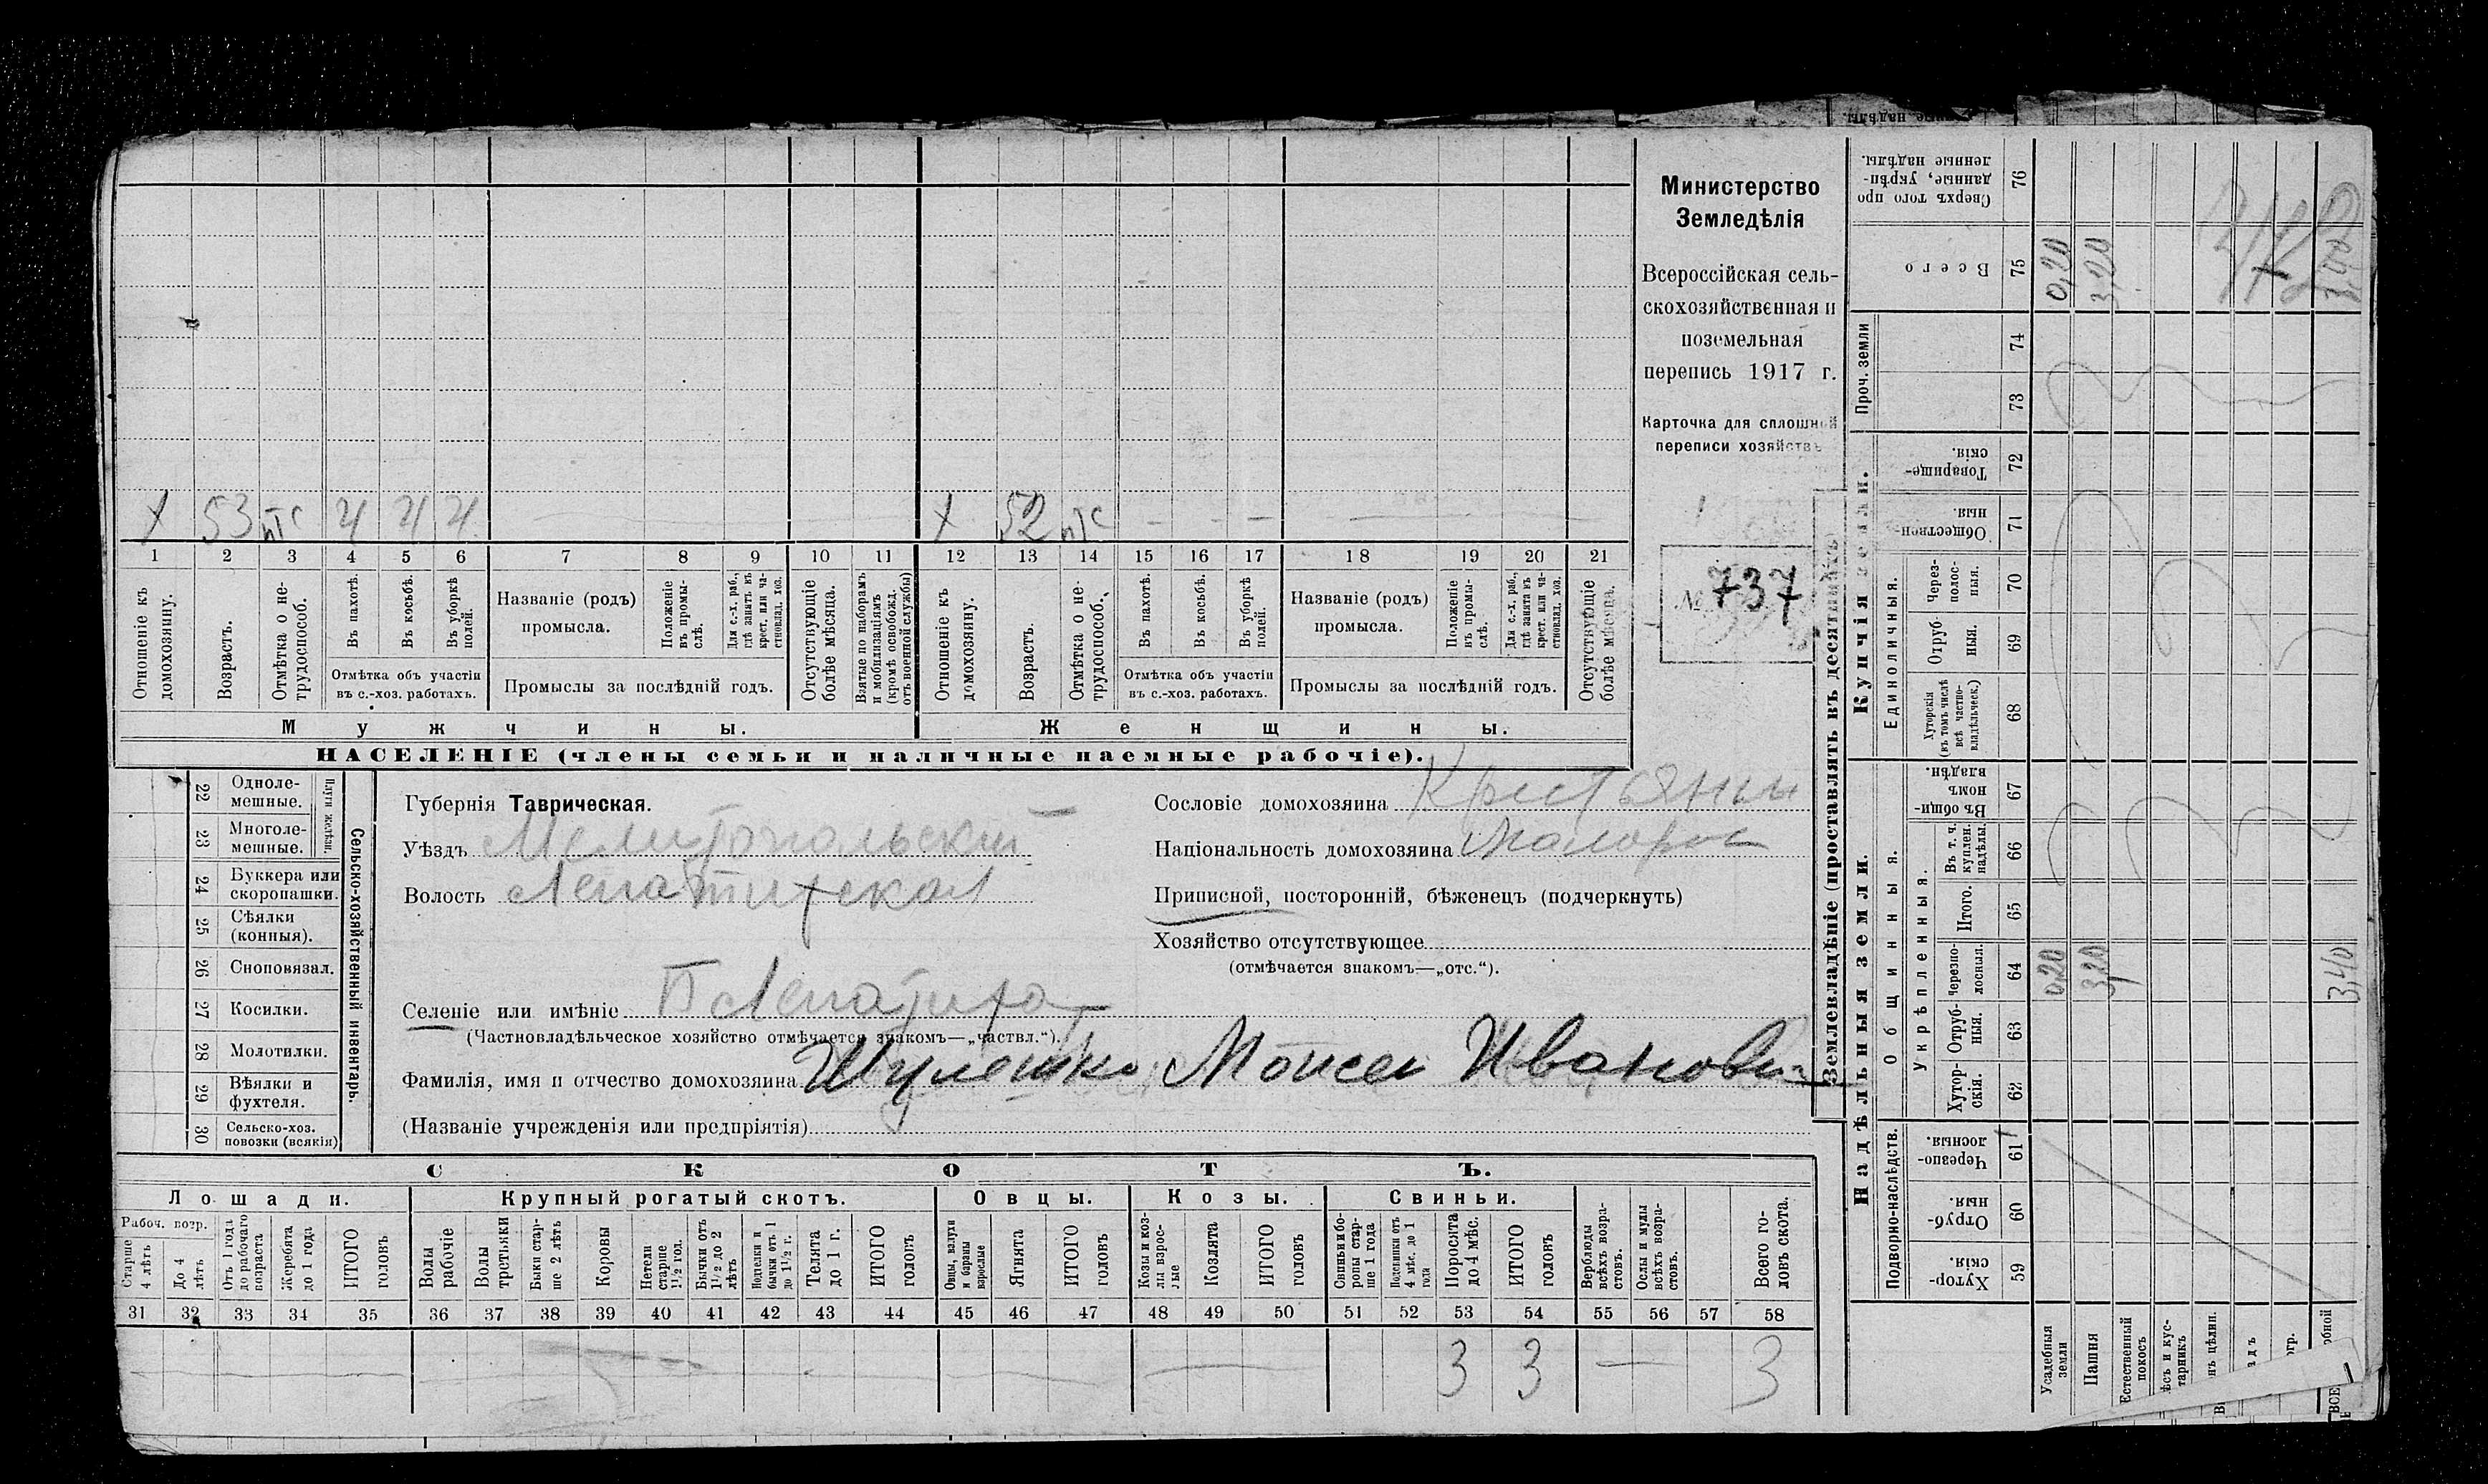 Министерство
Земледѣлія
Всероссійская сель-
скохозяйственная и
поземельная
перепись 1917 г.
Карточка для сплошной
переписи хозяйствъ
№ 737
х 53 ч ч ч х 52 — — —
1 2 3 4 5 6 7 8 9 10 11 12 13 14 15 16 17 18 19 20 21
Отношеніе къ домохозяину.
Возрастъ.
Отмѣтка о не-трудоспособ.
Въ пахотѣ.
Въ косьбѣ.
Въ уборкѣ полей.
Отмѣтка объ участіи
въ с.-хоз. работахъ.
Названіе (родъ)
промысла.
Положеніе въ промы-слѣ.
Для с.-х. раб., гдѣ занятъ въ крест. или ча-стновлад. хоз.
Промыслы за послѣдній годъ.
Отсутствующіе болѣе мѣсяца.
Взятые по наборамъ и мобилизаціямъ (кромѣ освобожд. отъ военной службы)
Отношеніе къ домохозяину.
Возрастъ.
Отмѣтка о не-трудоспособ.
Въ пахотѣ.
Въ косьбѣ.
Въ уборкѣ полей.
Отмѣтка объ участіи
въ с.-хоз. работахъ.
Названіе (родъ)
промысла.
Положеніе въ промы-слѣ.
Для с.-х. раб., гдѣ занята въ крест. или ча-стновлад. хоз.
Промыслы за послѣдній годъ.
Отсутствующіе болѣе мѣсяца.
Мужчины. Женщины.
НАСЕЛЕНІЕ (члены семьи и наличные наемные рабочіе).
22 Одноле-мешные.
23 Многоле-мешные.
Плуги желѣзн.
24 Буккера или скоропашки.
25 Сѣялки (конныя).
26 Сноповязал.
27 Косилки.
28 Молотилки.
29 Вѣялки и фухтеля.
30 Сельско-хоз. повозки (всякія)
Сельско-хозяйственный инвентарь.
Губернія Таврическая.
Уѣздъ Мелитопольскій
Волость Лепатихская
Селеніе или имѣніе Б Лепатиха
(Частновладѣльческое хозяйство отмѣчается знакомъ—„частвл.“).
Фамилія, имя и отчество домохозяина Шулешко Моисеи Иванови
(Названіе учрежденія или предпріятія)
Сословіе домохозяина Крестьянин
Національность домохозяина малорос
Приписной, посторонній, бѣженецъ (подчеркнуть)
Хозяйство отсутствующее
(отмѣчается знакомъ—„отс.“).
СКОТЪ.
Лошади. Крупный рогатый скотъ. Овцы. Козы. Свиньи.
Рабоч. возр.
Старше 4 лѣтъ
До 4 лѣтъ
Отъ 1 года до рабочаго возраста
Жеребята до 1 года
ИТОГО головъ
Волы рабочіе
Волы третьяки
Быки стар-ше 2 лѣтъ
Коровы
Нетели старше 1½ год.
Бычки отъ 1½ до 2 лѣтъ
Подтелки и бычки отъ 1 до 1½ г.
Телята до 1 г.
ИТОГО головъ
Овцы, валухи и бараны взрослые
Ягнята
ИТОГО головъ
Козы и коз-лы взрос-лые
Козлята
ИТОГО головъ
Свиньи и бо-ровы стар-ше 1 года
Подсвинки отъ 4 мѣс. до 1 года
Поросята до 4 мѣс.
ИТОГО головъ
Верблюды всѣхъ возра-стовъ.
Ослы и мулы всѣхъ возра-стовъ.
Всего го-ловъ скота.
31 32 33 34 35 36 37 38 39 40 41 42 43 44 45 46 47 48 49 50 51 52 53 54 55 56 57 58
3 3 — 3
Землевладѣніе (проставлять въ десятинахъ)
Купчія земли.
Надѣльныя земли.
Проч. земли
Единоличныя.
Общинныя.
Укрѣпленныя.
Подворно-наслѣдств.
Сверхъ того про данные, укрѣп-ленные надѣлы. 76
Всего 75 0,20 3,20 3,40
74
73
Товарище-скія. 72
Обществен-ныя. 71
Через-полос-ныя. 70
Отруб-ныя. 69
Хуторскія (въ томъ числѣ всѣ частно-владѣльческ.) 68
Въ общи-номъ владѣн. 67
Въ т. ч. куплен. надѣлы. 66
Итого. 65
Черезпо-лосныя. 64 0,20 3,20 3,40
Отруб-ныя. 63
Хутор-скія. 62
Черезпо-лосныя. 61
Отруб-ныя. 60
Хутор-скія. 59
Усадебныя земли
Пашня
Естественный покосъ